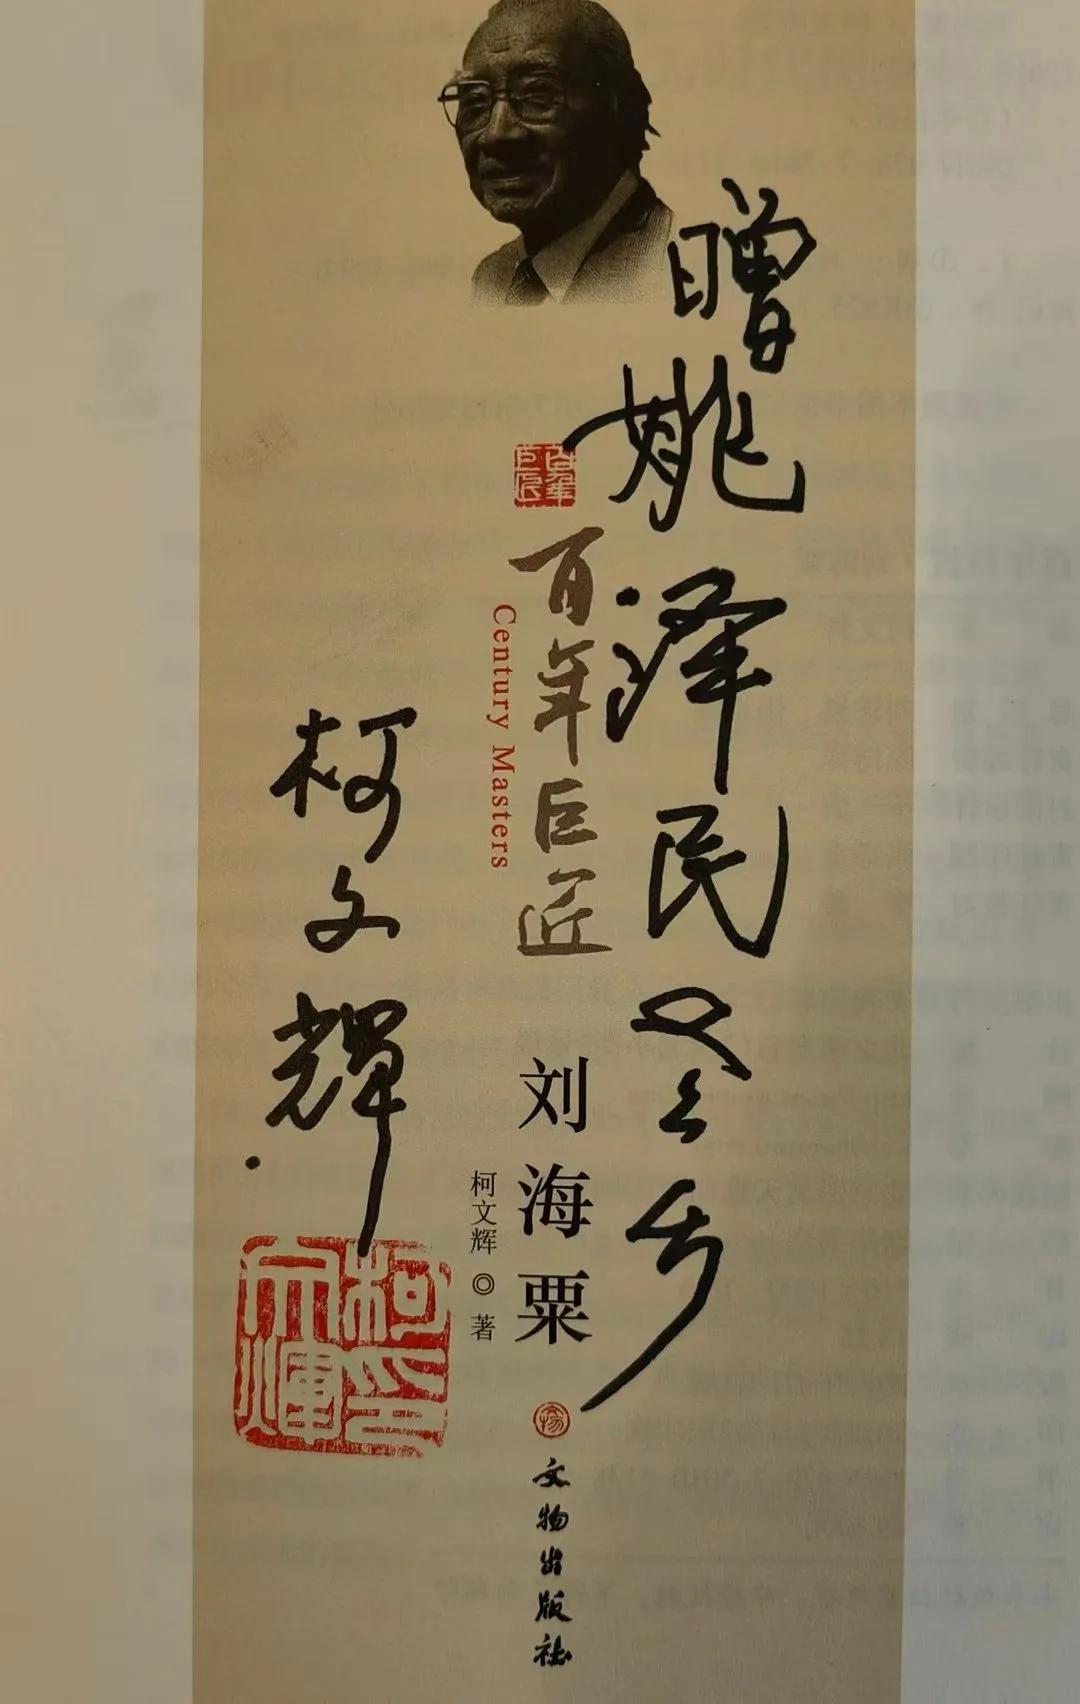 赠姚泽民
百年巨匠
百年巨匠
Century Masters
刘海粟
柯文辉◎著
文物出版社
柯文輝
柯印文煇